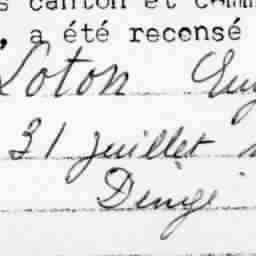 canton et comm
, a été recensé
Loton Eug
31 juillet
Dingé